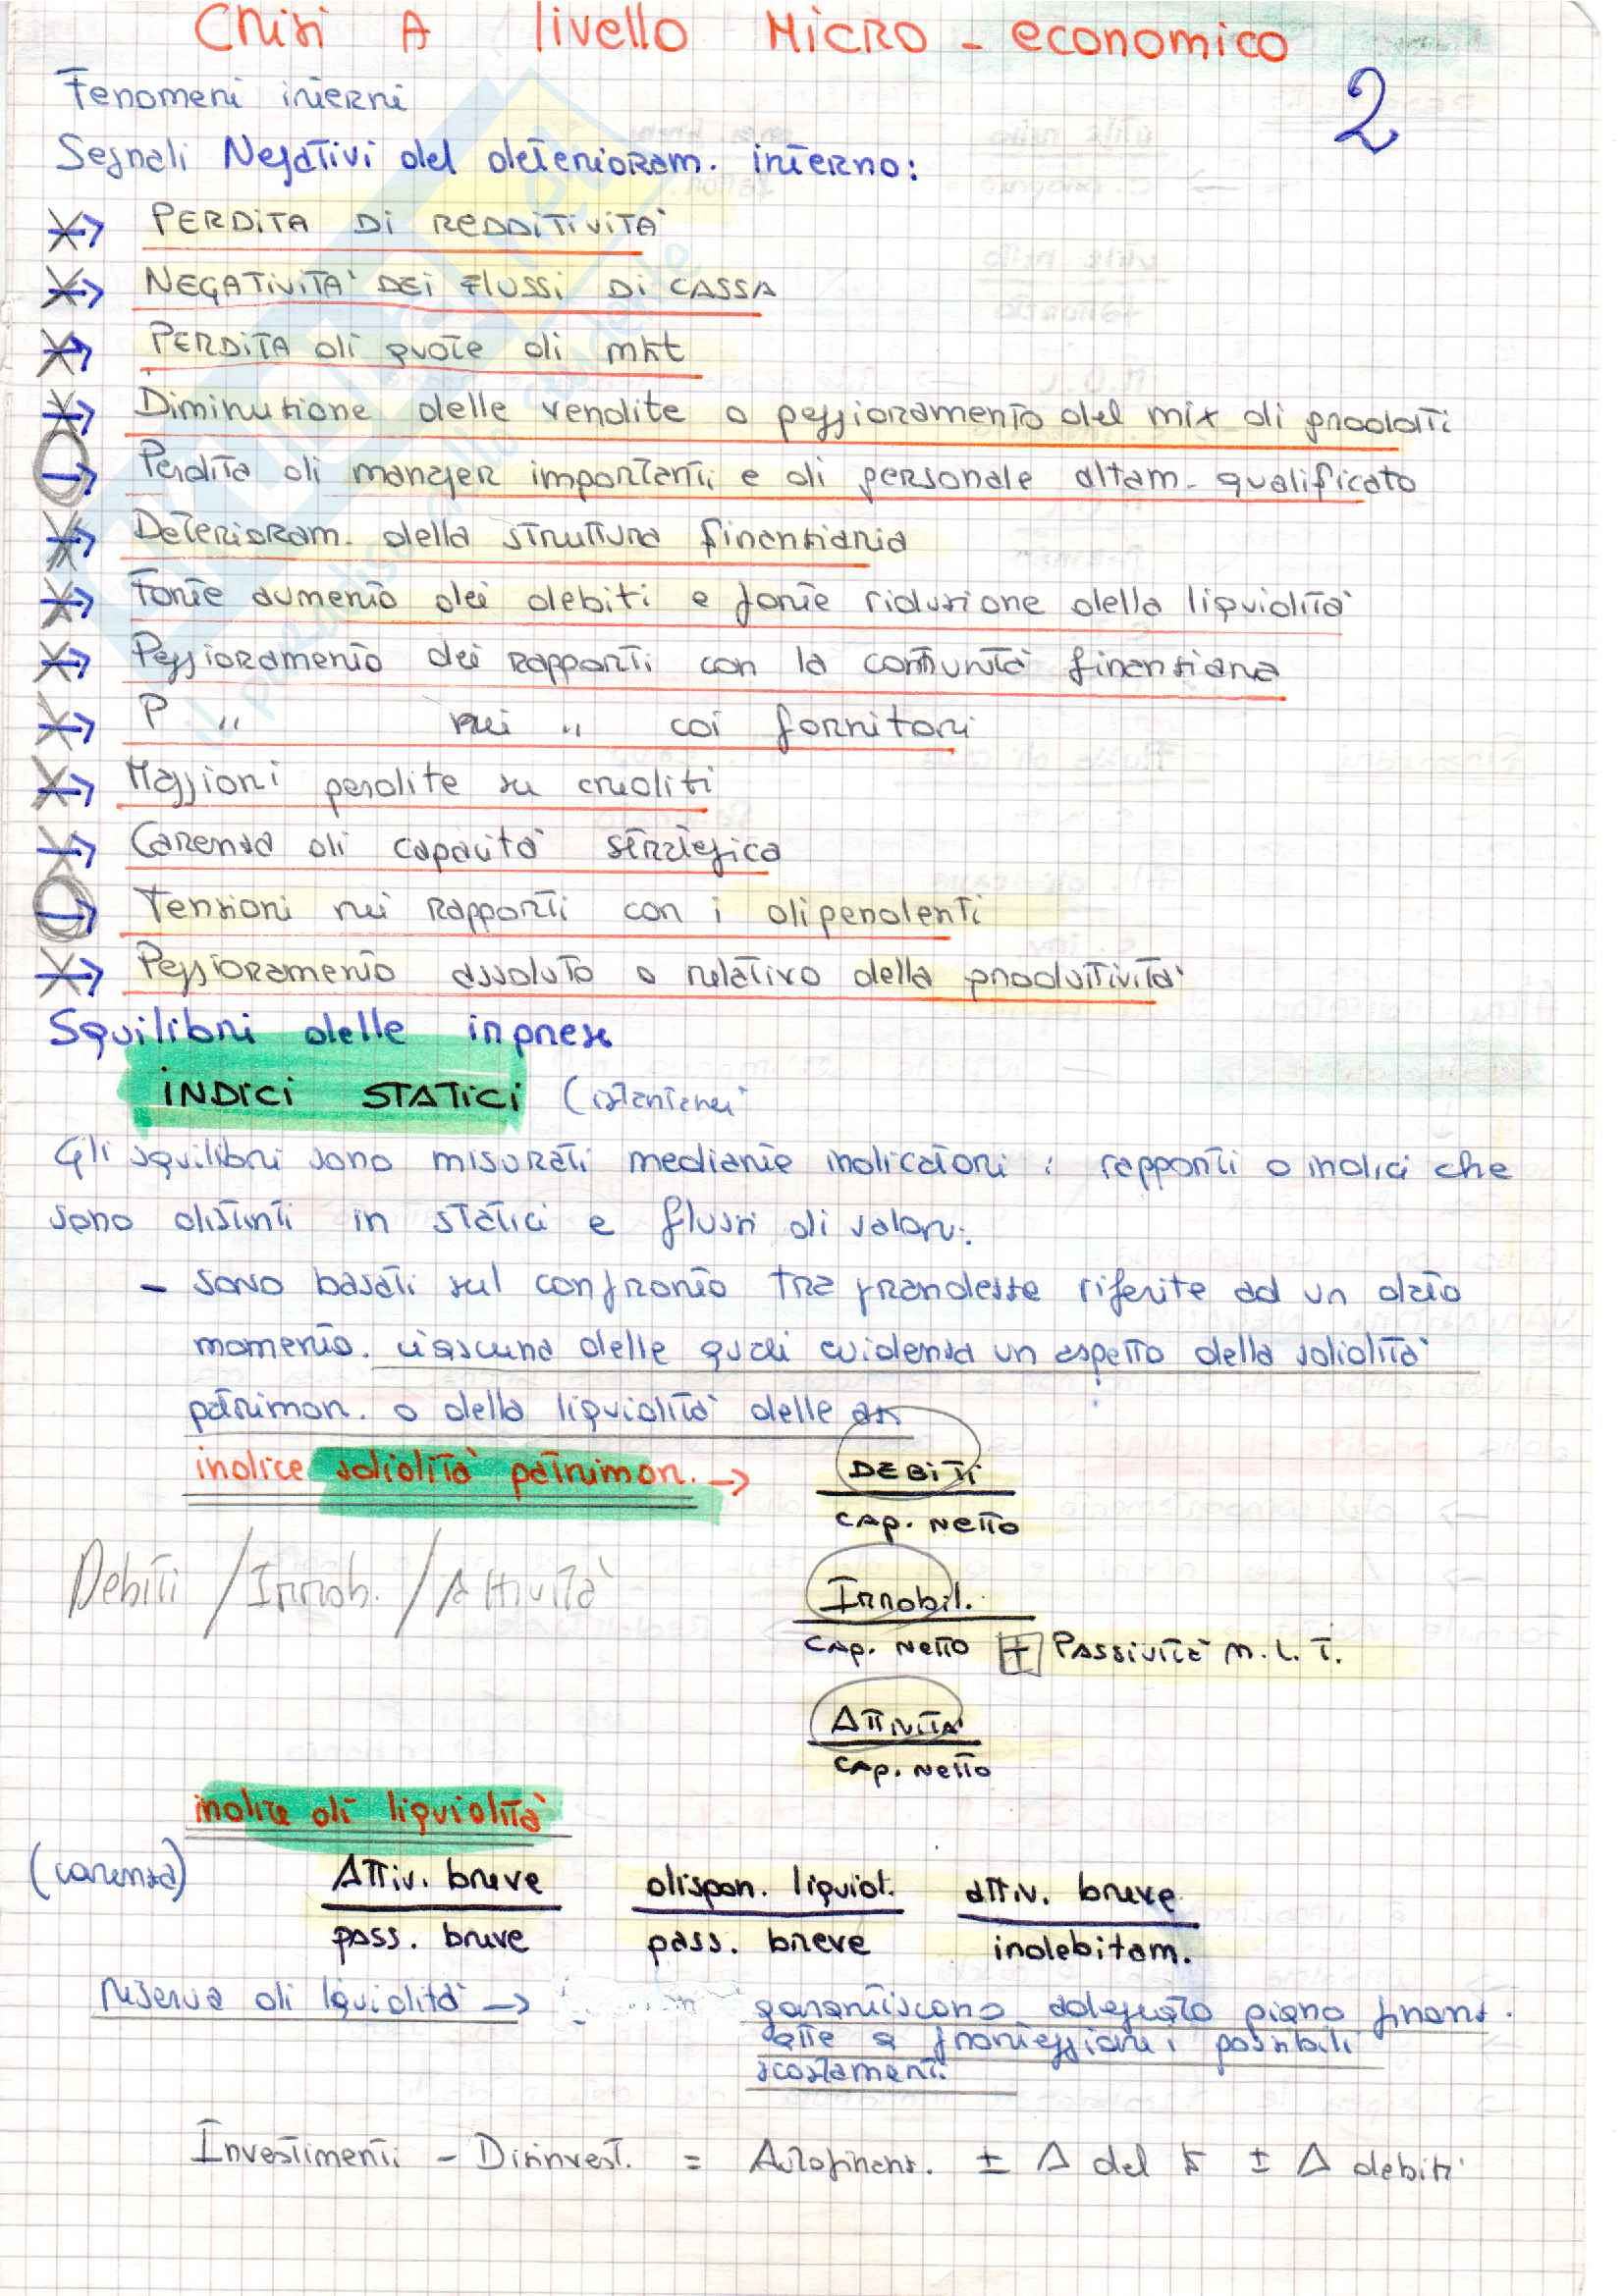 Crisi A livello Micro-economico
2
Fenomeni interni
Segnali Negativi del deterioram. interno:
→ PERDITA Di REDDITIVITA'
→ NEGATIVITA' DEI FLUSSI Di CASSA
→ PERDITA di quote di mkt
→ Diminuzione delle vendite o peggioramento del mix di prodotti
→ Perdita di manager importanti e di personale altam. qualificato
→ Deterioram. della struttura finanziaria
→ Forte aumento dei debiti e forte riduzione della liquidità
→ Peggioramento dei rapporti con la comunità finanziaria
→ P " nei " coi fornitori
→ Maggiori perdite su crediti
→ Carenza di capacità strategica
→ Tensioni nei rapporti con i dipendenti
→ Peggioramento assoluto o relativo della produttività
Squilibri delle imprese
INDICI STATICI (istantanei
Gli squilibri sono misurati mediante indicatori: rapporti o indici che
sono distinti in statici e flussi di valori:
- sono basati sul confronto tra grandezze riferite ad un dato
momento. ciascuna delle quali evidenza un aspetto della solidità
patrimon. o della liquidità delle az
indice solidità patrimon. → DEBITI
CAP. NETTO
Debiti / Immob. / Attività
Immobil.
CAP. NETTO + PASSIVITÀ M.L.T.
ATTIVITA'
CAP. NETTO
indice di liquidità
(carenza)
Attiv. breve dispon. liquid. attiv. breve
pass. breve pass. breve indebitam.
riserva di liquidità → garantiscono adeguato piano finanz.
atte a fronteggiare possibili
scostamenti
Investimenti - Disinvest. = Autofinanz. ± Δ del ± Δ debiti